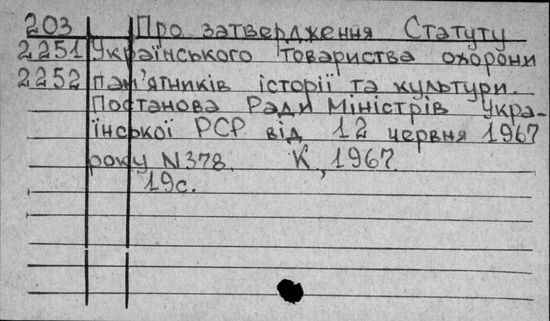 203 Про затвердження Статуту
2251 Українського товариства охорони
2252 пам'ятників історії та культури.
Постанова Ради Міністрів Укра-
їнської РСР від 12 червня 1967
року N378. К., 1967.
19с.